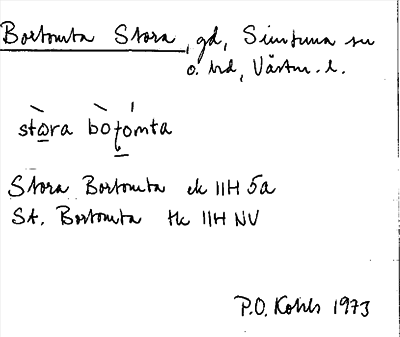 Bortomta Stora, gd, Simtuna sn
o. hd, Västm. l.
stora botomta
Stora Bortomta ek 11H 5a
St. Bortomta tk 11H NV
P.O. Kohls 1973